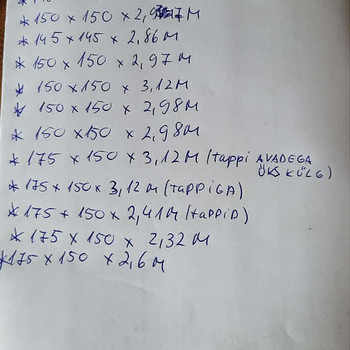 * 150 x 150 x 2,97 M
* 145 x 145 x 2,86 M
* 150 x 150 x 2,97 M
* 150 x 150 x 3,12 M
* 150 x 150 x 2,98 M
* 150 x 150 x 2,98 M
* 175 x 150 x 3,12 M (tappi AVADEGA
ÜKS KÜLG)
* 175 x 150 x 3,12 M (TAPPIGA)
* 175 + 150 x 2,41 M (tappiD)
* 175 x 150 x 2,32 M
* 175 x 150 x 2,6 M